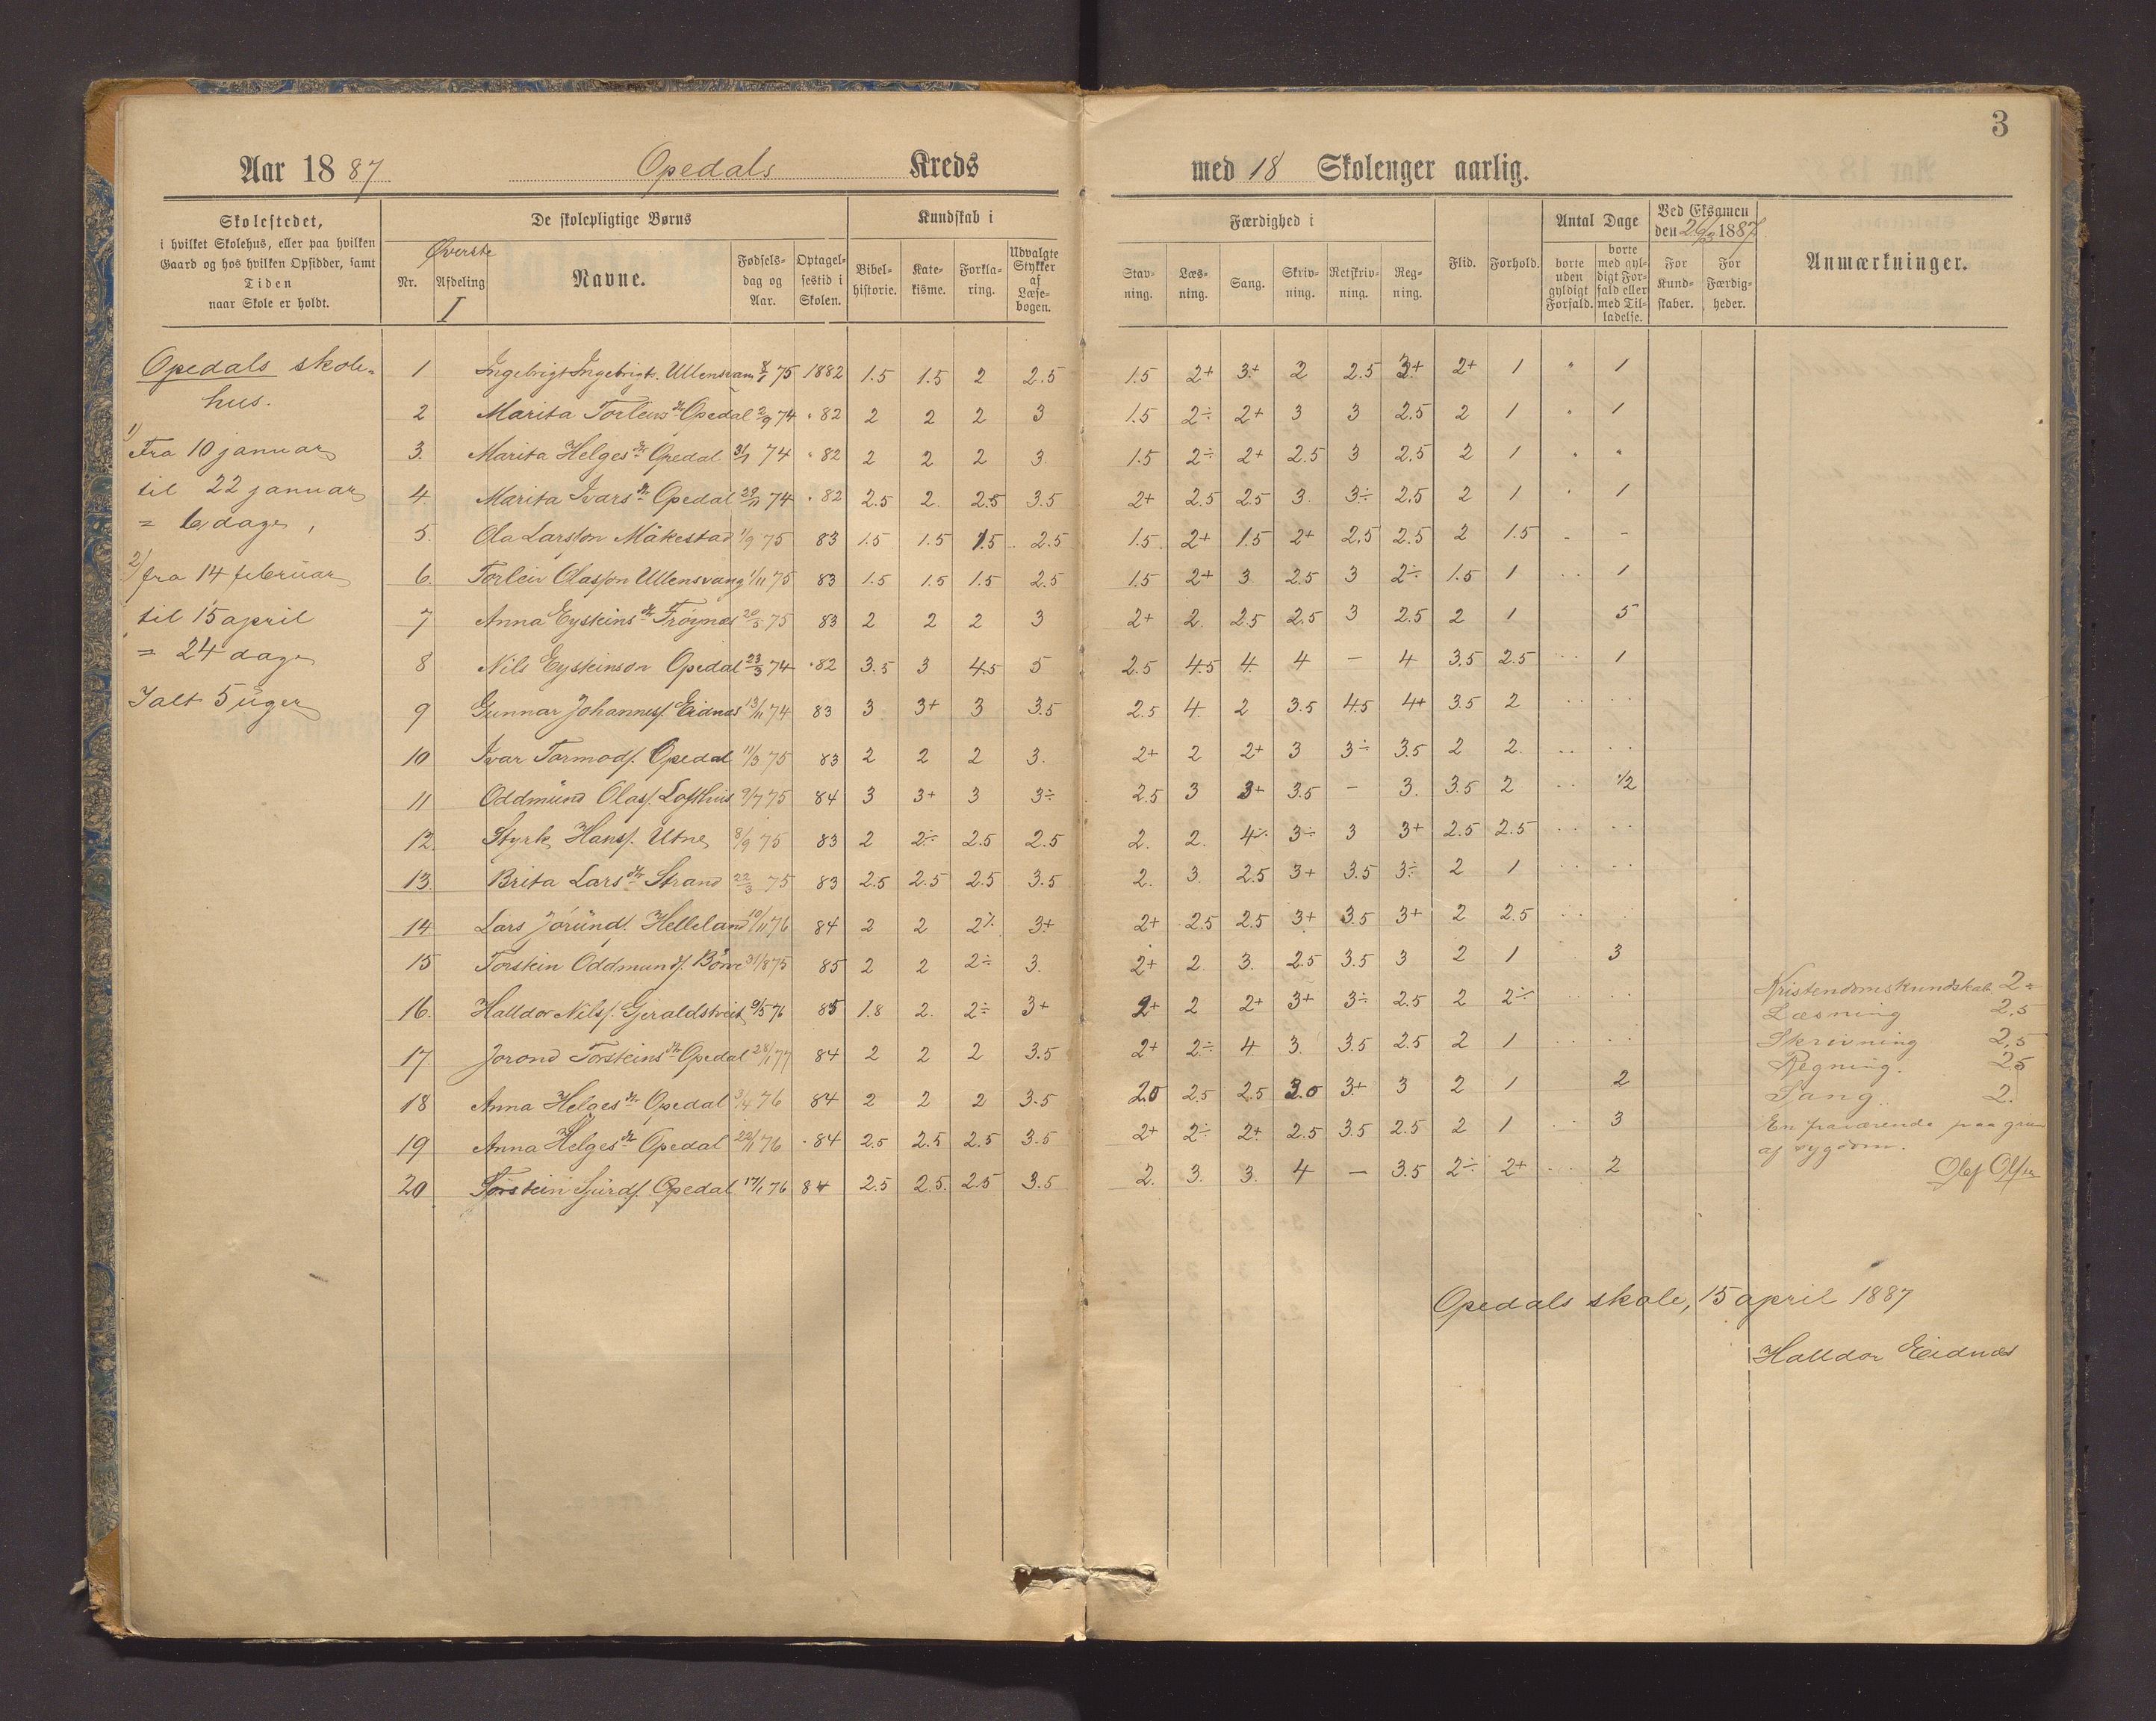 3
Aar 1887 Opedals Kreds med 18 Skolenger aarlig.
Skolestedet,
i hvilket Skolehus, eller paa hvilken
Gaard og hos hvilken Opsidder, samt
Tiden
naar Skole er holdt.
De skolepligtige Børns
Nr.
Øverste
Afdeling
I
Navne.
Fødsels-
dag og
Aar.
Optagel-
sestid i
Skolen.
Kundskab i
Bibel-
historie.
Kate-
kisme.
Forkla-
ring.
Udvalgte
Stykker
af
Læse-
bogen.
Færdighed i
Stav-
ning.
Læs-
ning.
Sang.
Skriv-
ning.
Retskriv-
ning.
Reg-
ning.
Flid.
Forhold.
Antal Dage
borte
uden
gyldigt
Forfald.
borte
med gyl-
digt For-
fald eller
med Til-
ladelse.
Ved Eksamen
den 26/3 1887
For
Kund-
skaber.
For
Færdig-
heder.
Anmærkninger.
Opedals skole-
hus.
1)
Fra 10 januar
til 22 januar
= 6 dage,
2)
fra 14 februar
til 15 april
= 24 dage
Ialt 5 uger
1 Ingebrigt Ingebrigts. Ullensvang 8/1 75 1882 1.5 1.5 2 2.5 1.5 2+ 3+ 2 2.5 3+ 2+ 1 " 1
2 Marita Torleivs dr Opedal 2/9 74 " 82 2 2 2 3 1.5 2÷ 2+ 3 3 2.5 2 1 " 1
3. Marita Helges dr Opedal 31/1 74 " 82 2 2 2 3. 1.5 2÷ 2+ 2.5 3 2.5 2 1 " "
4. Marita Ivars dr Opedal 29/11 74 " 82 2.5 2. 2.5 3.5 2+ 2.5 2.5 3. 3÷ 2.5 2 1 " 1
5. Ola Larsson Måkestad 1/9 75 83 1.5 1.5 1.5 2.5 1.5 2+ 1.5 2+ 2.5 2.5 2 1.5 - -
6. Torleiv Olasson Ullensvang 1/11 75 83 1.5 1.5 1.5 2.5 1.5 2+ 3 2.5 3 2÷ 1.5 1 .. 1
7 Anna Eysteins dr Trøynes 20/5 75 83 2 2 2 3 2+ 2. 2.5 2.5 3 2.5 2 1 5
8 Nils Eysteinson Opedal 23/3 74 " 82 3.5 3 4.5 5 2.5 4.5 4. 4 — 4 3.5 2.5 .. 1
9 Gunnar Johanness. Eidnes 13/11 74 83 3 3+ 3 3.5 2.5 4. 2 3.5 4.5 4+ 3.5 2 .. ..
10 Ivar Tormods. Opedal 11/3 75 83 2 2 2 3. 2+ 2 2+ 3 3÷ 3.5 2 2. .. ..
11 Oddmund Olas. Lofthus 9/7 75 84 3 3+ 3 3÷ 2.5 3 3+ 3.5 — 3. 3.5 2 .. 1/2
12. Styrk Hans. Utne 8/9 75 83 2 2÷ 2.5 2.5 2. 2. 4÷ 3÷ 3 3+ 2.5 2.5 .. ..
13. Brita Lars dr Strand 22/3 75 83 2.5 2.5 2.5 3.5 2. 3. 2.5 3+ 3.5 3÷ 2 1 .. ..
14 Lars Jørund. Helleland 10/11 76 84 2 2 2÷ 3+ 2+ 2.5 2.5 3+ 3.5 3+ 2 2.5 .. .
15 Torstein Oddmunds. Børve 31/8 75 85 2 2 2÷ 3. 2+ 2. 3. 2.5 3.5 3 2 1 3
16. Halldor Nils. Gjeraldstveit 9/5 76 85 1.8 2. 2÷ 3+ 2+ 2 2+ 3+ 3÷ 2.5 2 2÷ .. ..
17. Jorond Torsteins dr Opedal 28/1 77 84 2 2 2 3.5 2+ 2÷ 4 3. 3.5 2.5 2 1 .. ..
18 Anna Helges dr Opedal 3/4 76 84 2 2 2 3.5 2.0 2.5 2.5 3.0 3+ 3 2 1 2
19 Anna Helges dr Opedal 22/11 76 " 84 2.5 2.5 2.5 3.5 2+ 2÷ 2+ 2.5 3.5 2.5 2 1 .. 3
20 Torstein Sjurds. Opedal 17/1 76 84 2.5 2.5. 2.5 3.5 2. 3. 3. 4 — 3.5 2÷ 2+ .. 2
Kristendomskundskab 2÷
Læsning 2,5
Skrivning 2,5
Regning. 2,5
Sang. 2.
En fraværende paa grund
af sygdom.
Olaf Olsen
Opedals skole, 15 april 1887
Halldor Eidnes